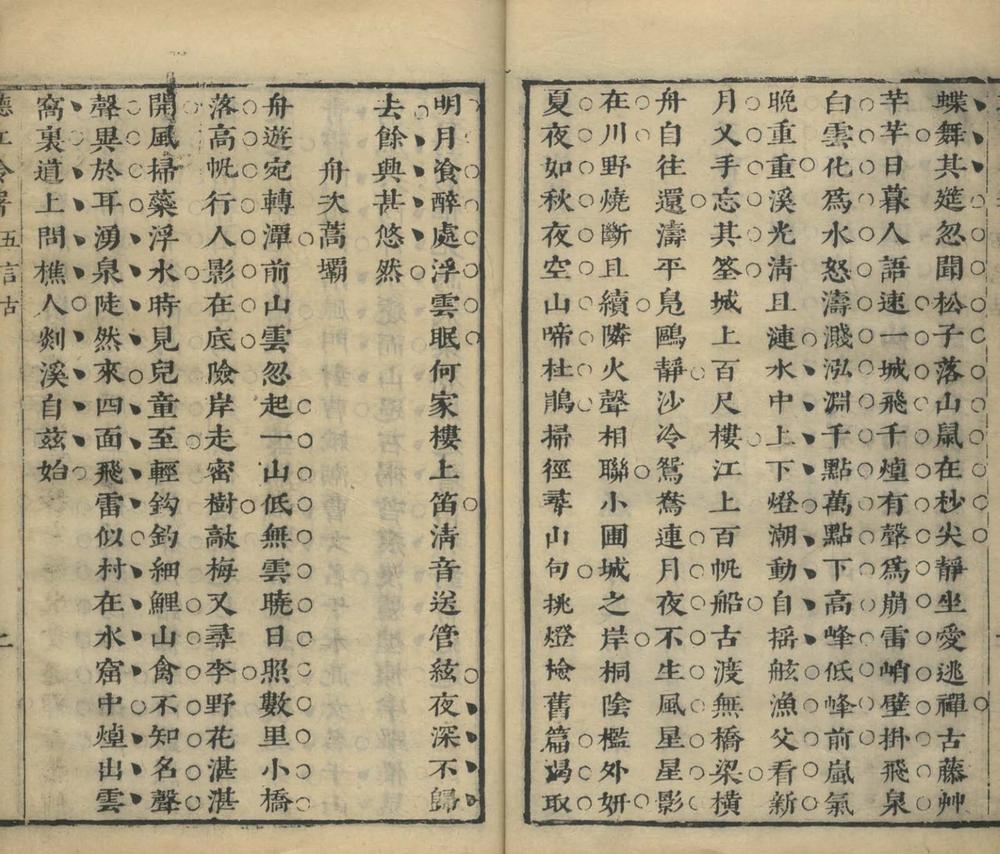 蝶舞其筵忽聞松子落山鼠在杪尖靜坐愛逃禪古藤艸
芊芊日暮人語速一城飛千煌有聲爲崩雷峭壁掛飛泉
白雲化爲水怒濤濺泓淵千點萬點下高峰低峰前嵐氣
晚重重溪光清且漣水中上下燈潮動自搖舷漁父看新
月又手忘其筌城上百尺樓江上百帆船古渡無橋梁橫
舟自往還濤平鳧鷗靜沙冷鴛鴦連月夜不生風星星影
在川野燒斷且續隣火聲相聯小圃城之岸桐陰檻外妍
夏夜如秋夜空山啼杜鵑掃徑尋山句挑燈檢舊篇渴取
明月飡醉處浮雲眠何家樓上笛清音送管絃夜深不歸
去餘興甚悠然
舟次蒿壩
舟遊宛轉潭前山雲忽起一山低無雲曉日照數里小橋
落高帆行人影在底險岸走密樹敲梅又尋李野花湛湛
開風掃藥浮水時見兒童至輕鈎釣細鯉山禽不知名聲
聲異於耳湧泉陡然來四面飛雷似村在水窟中煌出雲
窩裏道上問樵人剡溪自茲始
五言古